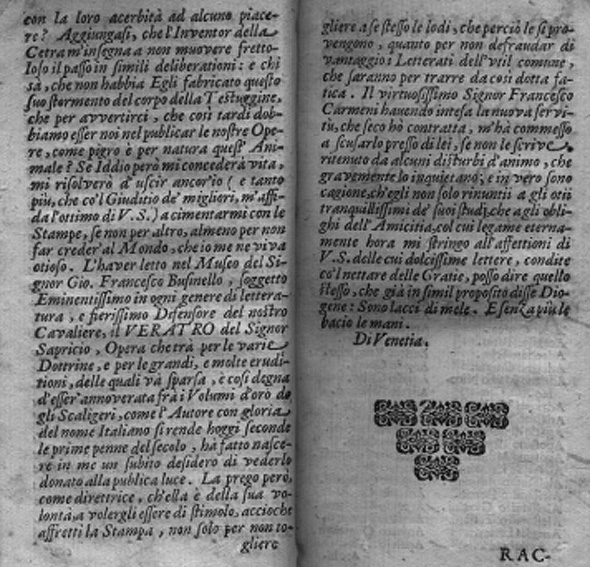 con la loro acerbità ad alcuno piace-
re? Aggiungasi, che l'Inventor della
Cetra m'insegna a non muovere fretto-
loso il passo in simili deliberationi: e chi
sà, che non habbia Egli fabricato questo
suo stormento del corpo della Testuggine,
che per avvertirci, che così tardi dob-
biamo esser noi nel publicar le nostre Ope-
re, come pigro è per natura quest' Ani-
male? Se Iddio però mi concederà vita,
mi risolverò d'uscir ancor'io (e tanto
più, che co'l Giuditio de' migliori, m'affi-
da l'ottimo di V.S.) a cimentarmi con le
Stampe, se non per altro, almeno per non
far creder'al Mondo, che io me ne viva
otioso. L'haver letto nel Museo del Si-
gnor Gio. Francesco Businello, soggetto
Eminentissimo in ogni genere di lettera-
tura, e fierissimo Difensore del nostro
Cavaliere, il VERATRO del Signor
Sapricio, Opera che trà per le varie
Dottrine, e per le grandi, e molte erudi-
tioni, delle quali và sparsa, e così degna
d'esser'annoverata frà i Volumi d'oro de
gli Scaligeri, come l'Autore con gloria
del nome Italiano si rende hoggi secondo
le prime penne del secolo, hà fatto nasce-
re in me un subito desidero di vederlo
donato alla publica luce. La prego però,
come direttrice, ch'ella è della sua vo-
lontà, a volergli essere di stimolo, accioche
affretti la Stampa, non solo per non to-
gliere
gliere a se stesso le lodi, che perciò le si pro-
vengono, quanto per non defraudar di
vantaggio i Letterati dell'vtil comune,
che saranno per trarre da così dotta fa-
tica. Il virtuosissimo Signor Francesco
Carmeni havendo intesa la servi-
tù, che seco hò contratta, m'hà commesso
a scusarlo presso di lei, se non le scrive,
ritenuto da alcuni disturbi d'animo, che
gravemente lo inquietano; e in vero sono
cagione, ch'egli non solo rinuntii a gli otii
tranquillissimi de' suoi studi, che a gli obli-
ghi dell'Amicitia, col cui legame eterna-
mente hora mi stringo all'affettioni di
V.S. delle cui dolcissime lettere, condite
co'l nettare delle Gratie, posso dire quello
stesso, che già in simil proposito disse Dio-
gene: Sono lacci di mele. E senza più le
bacio le mani.
Di Venetia.
RAC-